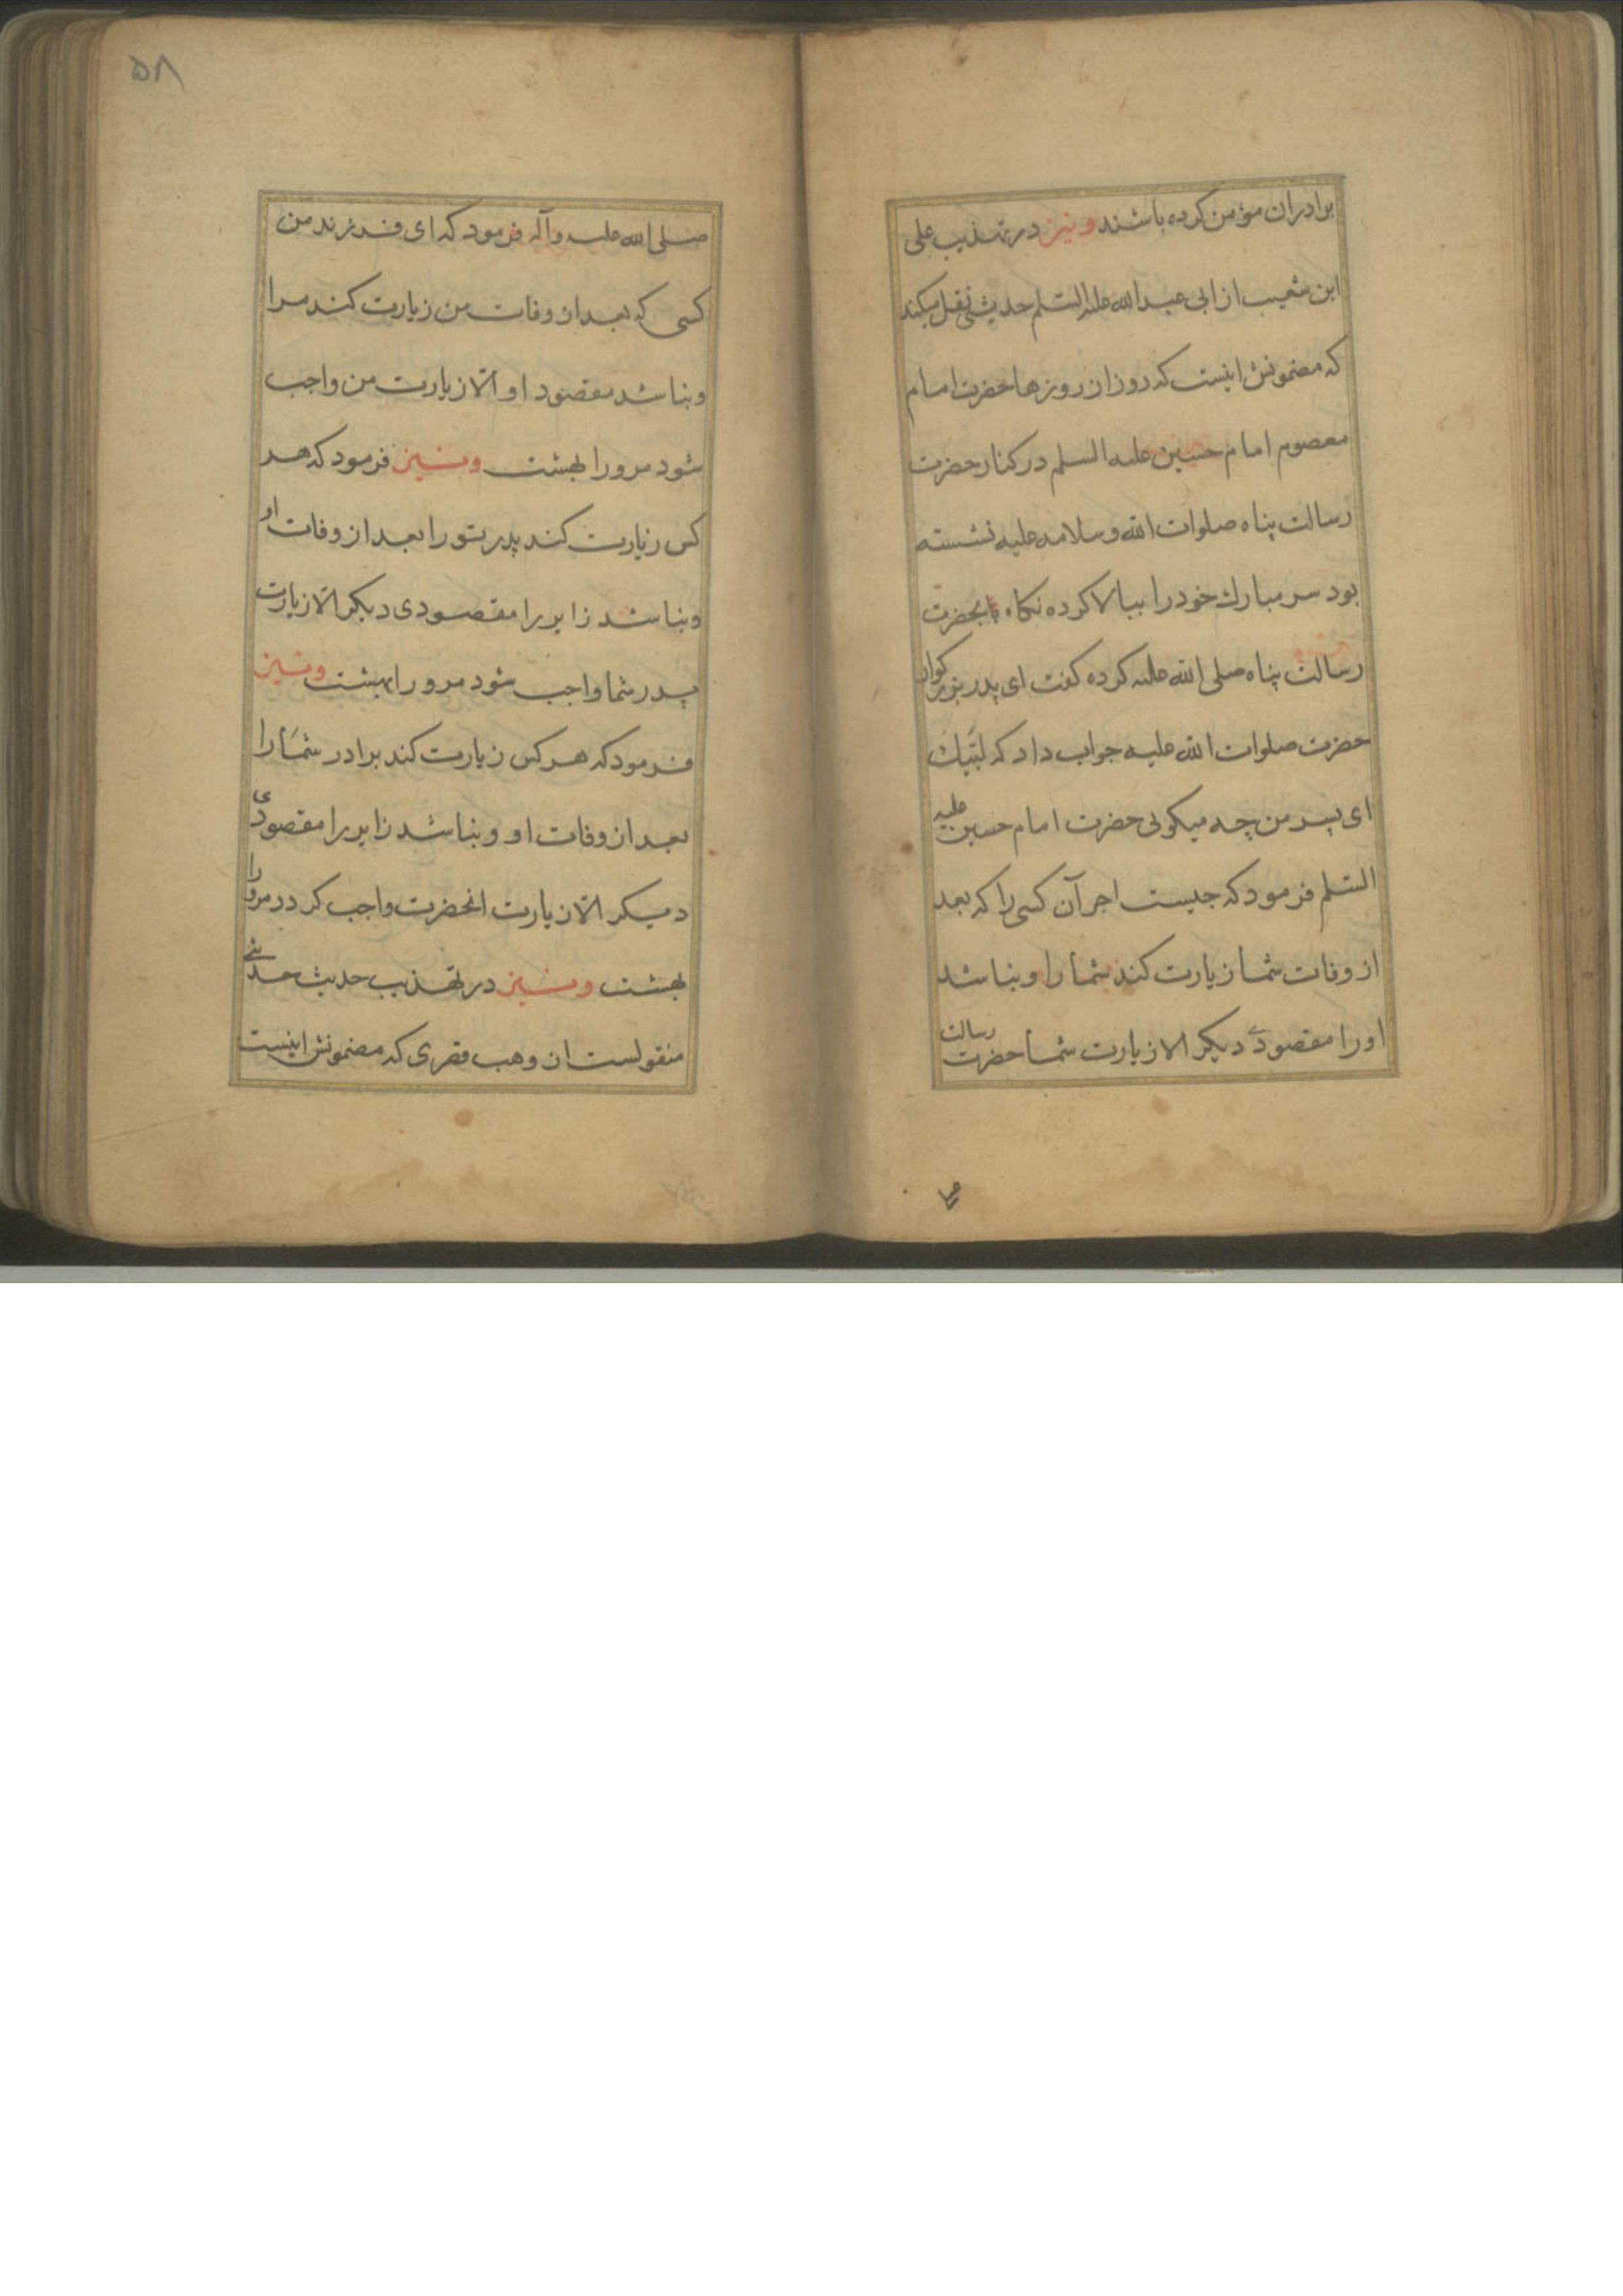 برادران مؤمن کرده باشند و نیز در تهذیب علی
ابن شعیب از ابی عبدالله علیه السلم حدیثی نقل میکند
که مضمونش اینست که روز از روزها حضرت امام
معصوم امام حسین علیه السلم در کنار حضرت
رسالت پناه صلوات الله و سلامه علیه نشسته
بود سر مبارک خود را ببالا کرده نکاه بحضرت
رسالت پناه صلی الله علیه کرده کفت ای پدر بزرکوار
حضرت صلوات الله علیه جواب داد که لبّیک
ای پسر من چه میکوئی حضرت امام حسین علیه
السلم فرمود که جیست اجر آن کسی را که بعد
از وفات شما زیارت کند شما را و نباشد
او را مقصودی دیکر الا زیارت شما حضرت رسالت
۵۸
صلی الله علیه وآله فرمود که ای فرزند من
کسی که بعد از وفات من زیارت کند مرا
و نباشد مقصود او الّا زیارت من واجب
شود مرورا بهشت و نیز فرمود که هر
کس زیارت کند پدر تو را بعد از وفات او
و نباشد زایر را مقصودی دیکر الّا زیارت
پدر شما واجب شود مرورا بهشت و نیز
فرمود که هر کس زیارت کند برادر شما را
بعد از وفات او و نباشد زایر را مقصودی
دیکر الّا زیارت انحضرت واجب کردد مرورا
بهشت و نیز در تهذیب حدیث
منقولست از وهب قصری که مضمونش اینست